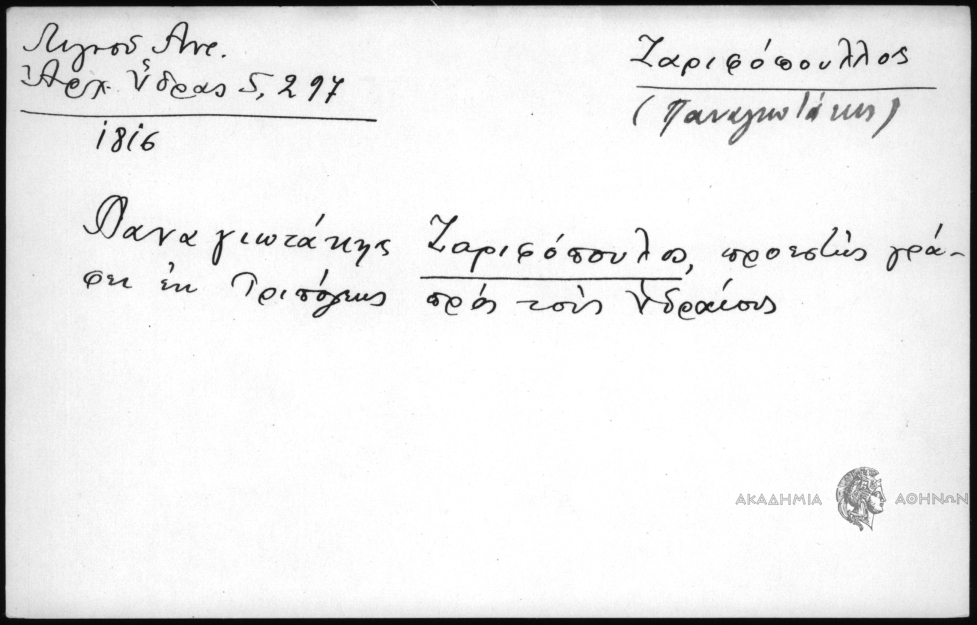 Λιγνοῦ Ἀντ.
Ἀρχ. Ὕδρας 5, 297
1816
Ζαριφόπουλλος
(Παναγιωτάκης)
Παναγιωτάκης Ζαριφόπουλος, προεστὼς γρά-
φει ἐκ Τριπόλεως πρὸς τοὺς Ὑδραίους
ΑΚΑΔΗΜΙΑ ΑΘΗΝΩΝ